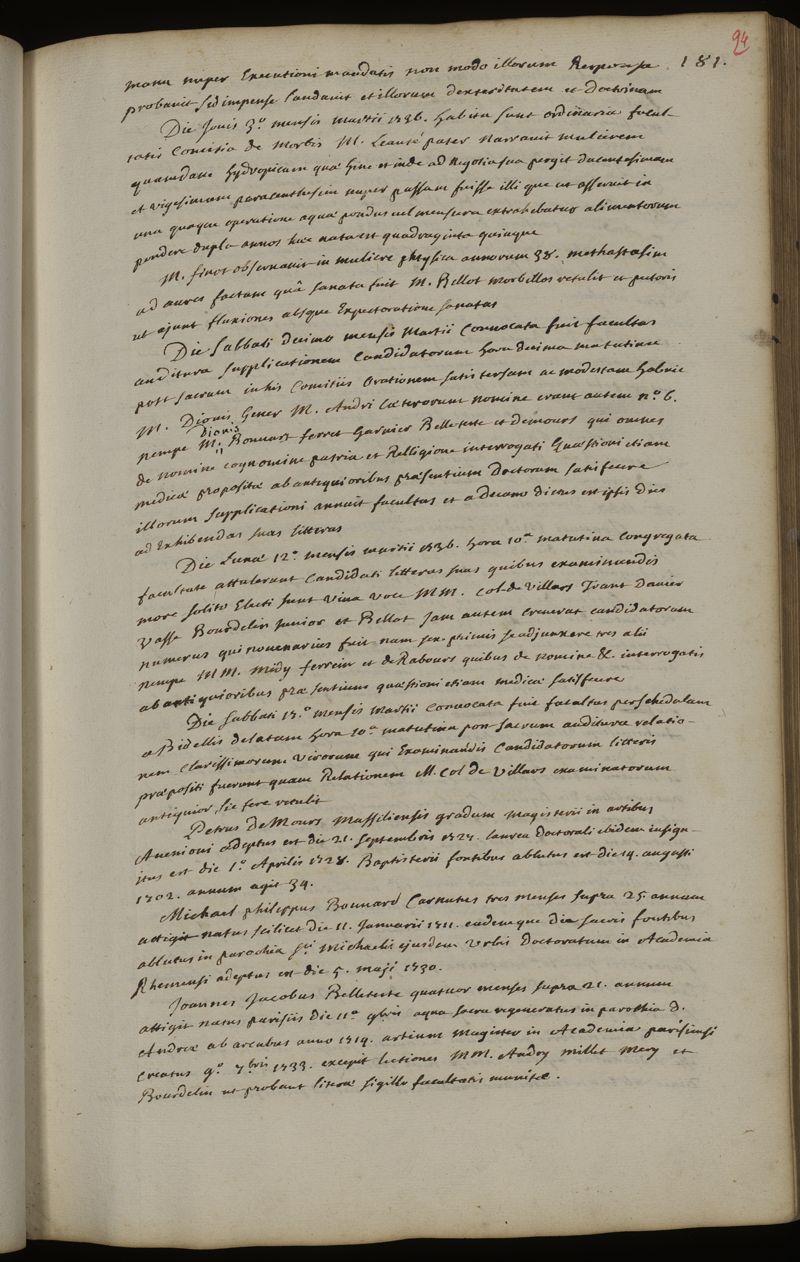 94
181.
manu nuper Executioni mandatis non modo illorum Responsa
probavit sed impense laudavit et illorum dexteritatem et Doctrinam
Die Jovis 3.º mensis Martii 1736. habita sunt ordinaria facul-
tatis Comitia de Morbis M. Leaulté pater narravit mulierem
quamdam hydropicam quæ hinc et inde ad negotia sua pergit ducentesimam
et vigesimam paracenthesim nuper passam fuisse illi que ut asseruit in
una quaque operatione aquæ pondus vel mensura extrahebatur alimentorum
pondere dupla annos hæc nata est quadraginta quinque
M. finot observavit in muliere phtysica annorum 38. methastasim
ad aures factam quâ sanata fuit M. Bellot morbillos retulit et pectoris
ut ajunt fluxiones absque Expectoratione sanatas
Die Sabbati decimo mensis Martii Convocata fuit facultas
auditura supplicationem Candidatorum hora decima matutina
post sacrum in his Comitiis Orationem satis tersam ac modestam habuit
M. Dionis Gener M. Andri cæterorum nomine erant autem n.º 6.
nempe M. Dionis Bonnart ferret Garnier Belleteste et demours qui omnes
de nomine cognomine patria et Relligione interrogati Quæstioni etiam
medicæ propositæ ab antiquioribus præsentium Doctorum satisfecere
illorum supplicationi annuit facultas et a Decano dictus est ipsis dies
ad Exhibendas suas litteras
Die Lunæ 12.º mensis martii 1736. hora 10.ª matutina Congregata
facultate attulerunt Candidati litteras suas quibus examinandis
more solito Electi sunt viva voce MM. Col de Villars
Vasse Bourdelin junior et Bellot jam autem creverat candidatorum
numerus qui novenarius fuit nam sex primis se adjunxere tres alii
nempe MM. Midy ferrein et de Rabours quibus de nomine &c. interrogatis
ab antiquioribus præsentium quæstioni etiam medicæ satisfecere
Die Sabbati 17.º mensis Martii Convocata fuit facultas per schedulam
a Bidellis delatam hora 10.ª matutina post sacrum auditura relatio-
nem Clarissimorum virorum qui Examinandis Candidatorum litteris
præpositi fuerunt quam Relationem M. Col de Villars examinatorum
antiquior sic fere retulit
Petrus DeMours Massiliensis gradum magisterii in artibus
Avenioni adeptus est die 21. Septembris 1727. laurea Doctorali ibidem insigni-
tus est die 1.º Aprilis 1728. Baptisterii fontibus ablutus est die 14. augusti
1702. annum agit 34.
Michael philippus Bouvard Carnutus tres menses supra 25. annum
attigit natus scilicet die 11. Januarii 1711. eademque die sacris fontibus
ablutus in parochia S.ti Michaelis ejusdem Urbis Doctoratum in Academia
Rhemensi adeptus est die 5. maji 1730.
Joannes Jacobus Belleteste quatuor menses supra 21. annum
attigit natus parisiis die 11.ª 9bris aqua sacra regeneratus in parochia S.
Andreæ ab arcubus anno 1714. artium Magister in Academia parisiensi
Creatus 9.º 7.bris 1733. excepit lectiones MM. Andry Millet Mery et
Bourdelin ut probant literæ sigillo facultatis munitæ.